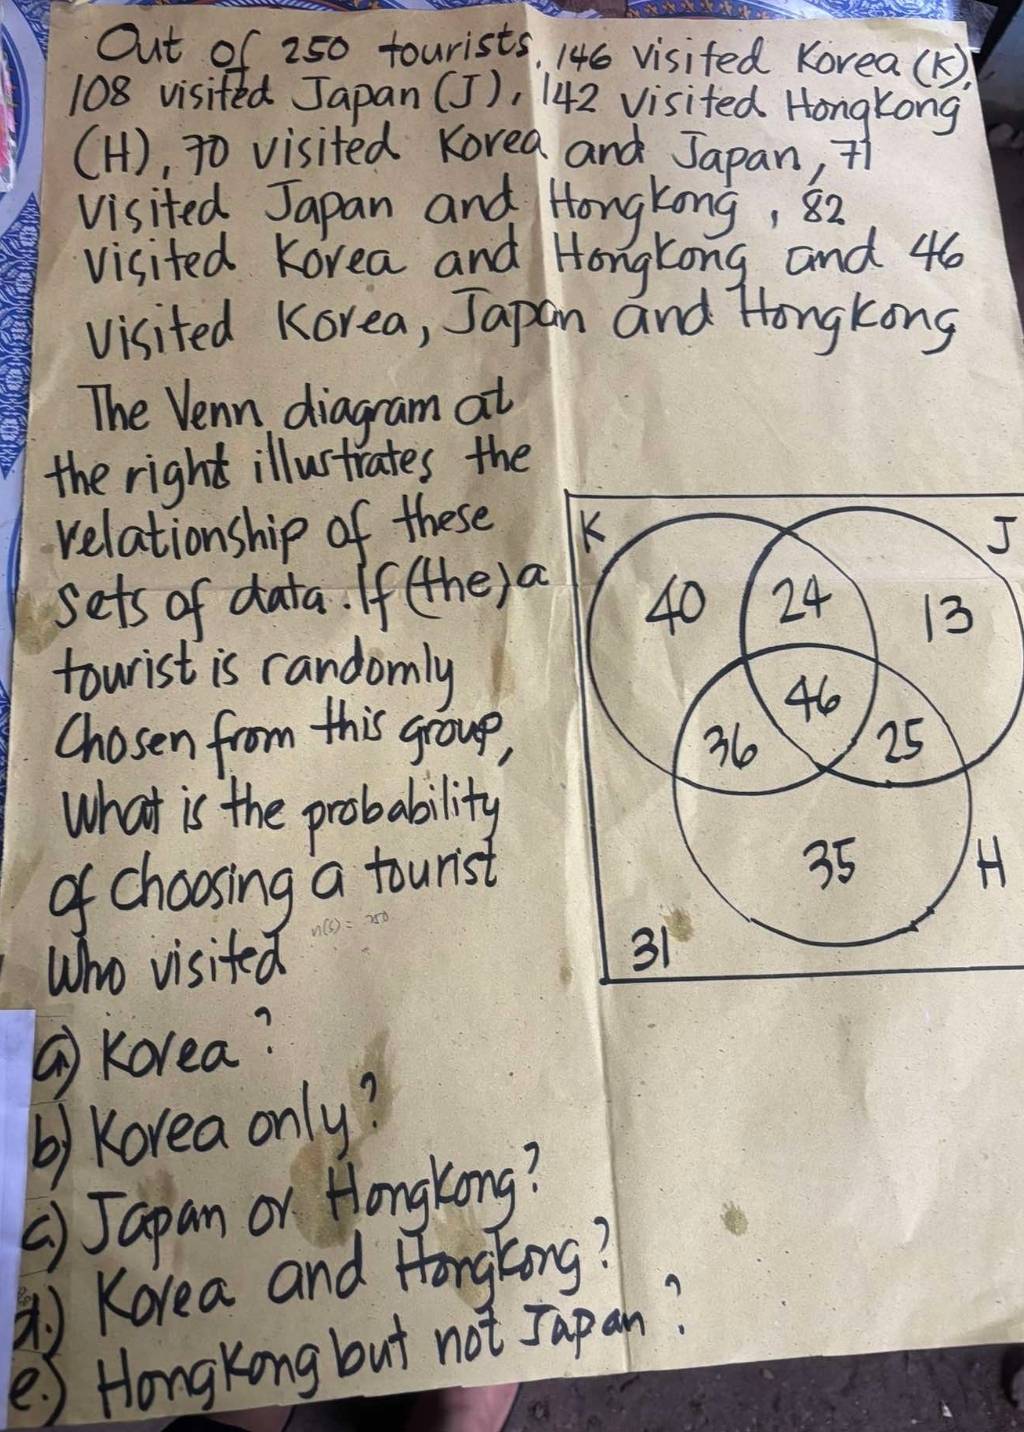 Out of 250 tourists, 146 visited Korea (K),
108 visited Japan (J), 142 visited Hongkong
(H), 70 visited Korea and Japan, 71
visited Japan and Hongkong, 82
visited Korea and Hongkong and 46
visited Korea, Japan and Hongkong
The Venn diagram at
the right illustrates the
relationship of these
sets of data. If (the) a
tourist is randomly
Chosen from this group,
What is the probability
of choosing a tourist
Who visited
n(S) = 250
a) Korea?
b) Korea only?
c) Japan or Hongkong?
d.) Korea and Hongkong?
e.) Hongkong but not Japan?
K
J
40
24
13
46
36
25
35
H
31